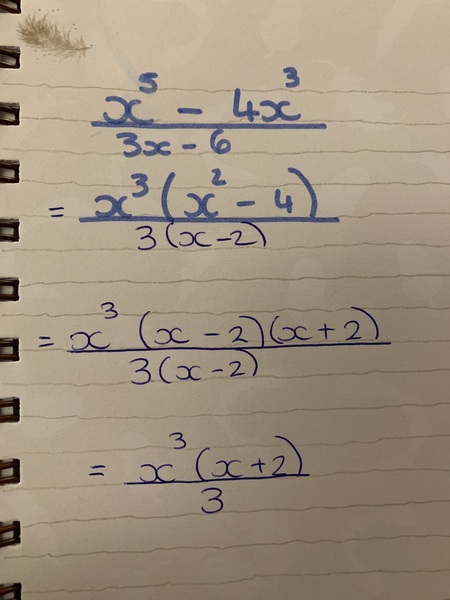 x⁵ - 4x³
3x - 6
= x³(x² - 4)
3(x-2)
= x³ (x - 2)(x + 2)
3(x-2)
= x³(x+2)
3